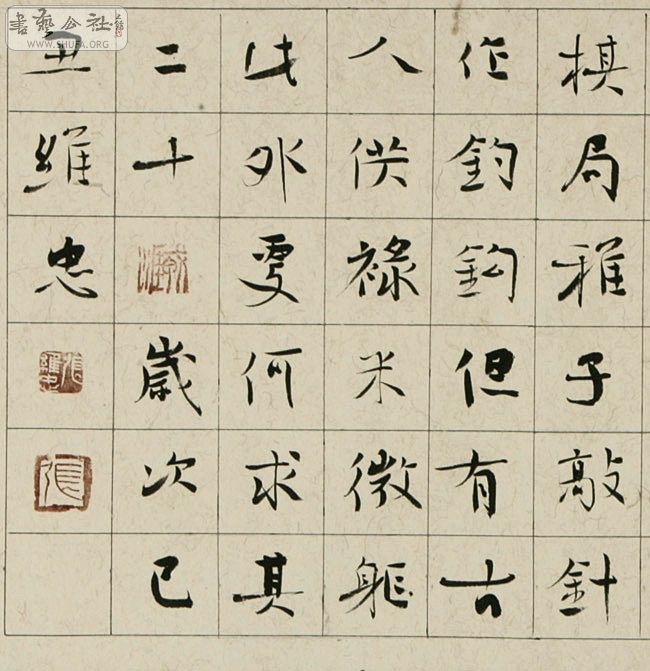 棋局稚子敲針
作釣鈎但有古
人供祿米微躯
此外更何求其
二十歲次己
丑維忠
張維忠
張
書藝公社
WWW.SHUFA.ORG